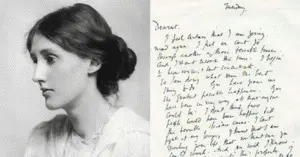 Tuesday.
Dearest,
I feel certain that I am going
mad again. I feel we can't go
through another of those terrible times.
And I shan't recover this time. I begin
to hear voices, and can't concentrate.
So I am doing what seems the best
thing to do. You have given me
the greatest possible happiness. You
have been in every way all that anyone
could be. I don't think two
people could have been happier till
this terrible disease came. I can't
fight it any longer, I know that I am
spoiling your life, that without me you
could work. And you will I know.